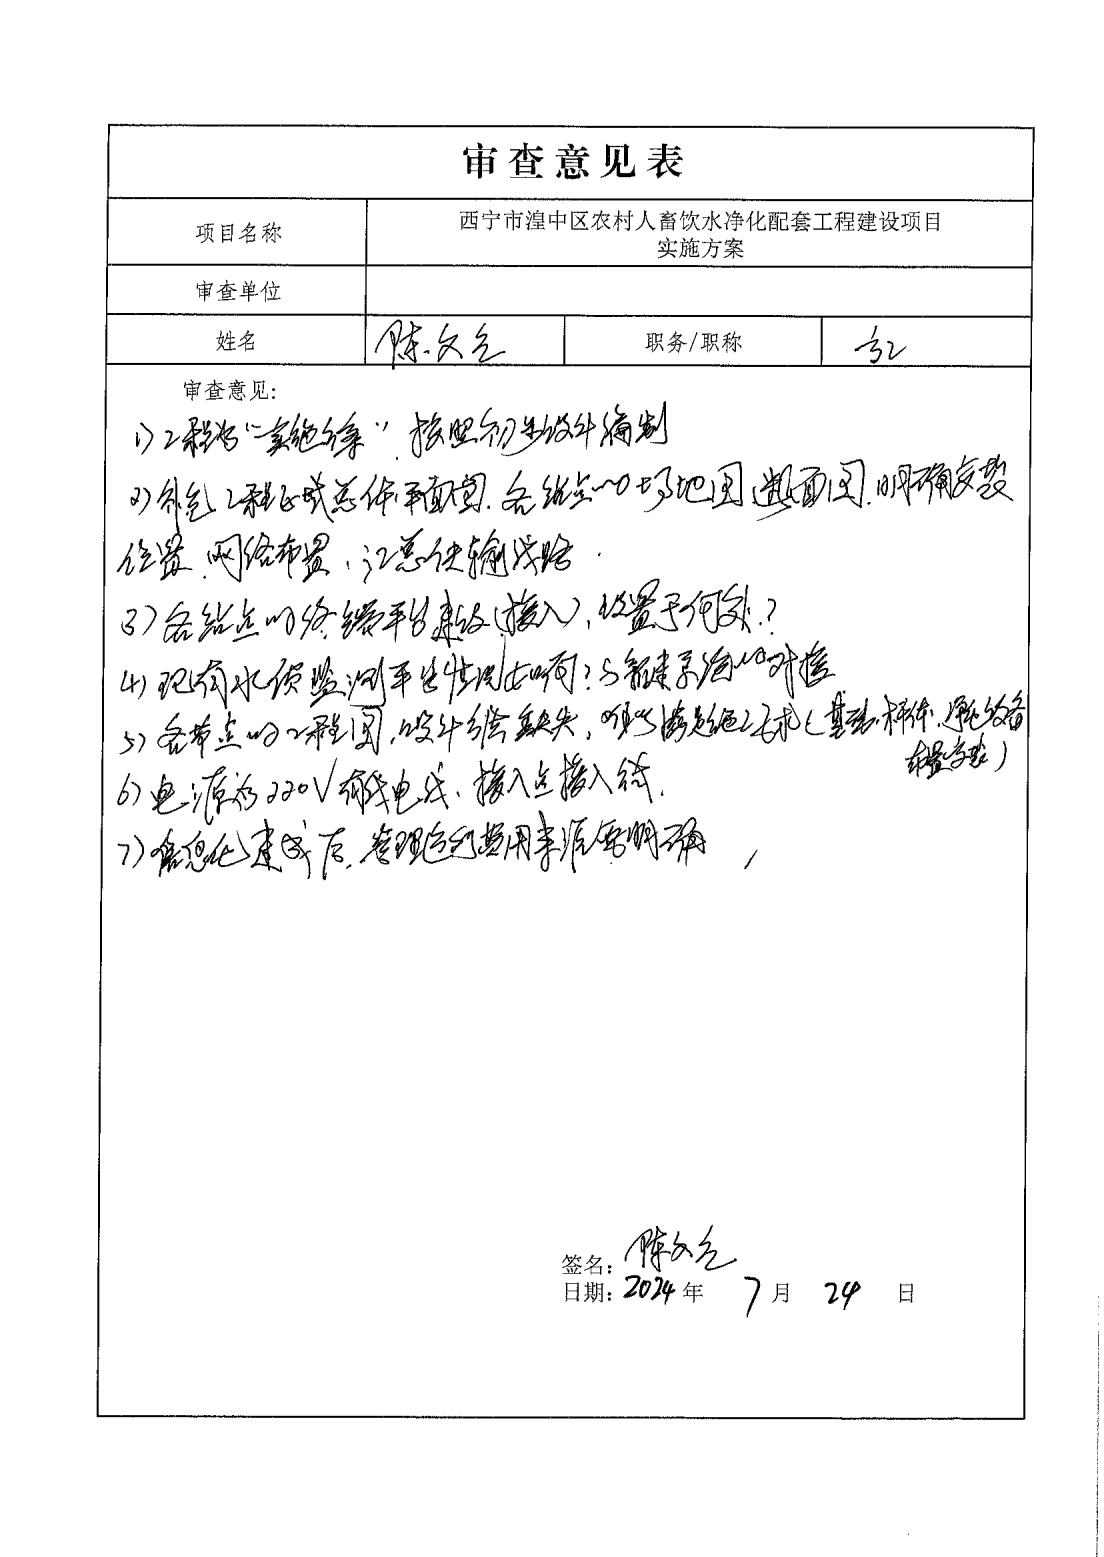 审查意见表
项目名称
西宁市湟中区农村人畜饮水净化配套工程建设项目
实施方案
审查单位
姓名
陈文元
职务/职称
高工
审查意见:
1)工程为“实施方案”,按照初步设计编制
2)补充工程区域总体平面图.各站点的场地图断面图.明确安装
位置、网络布置、汇总传输线路.
3)各站点的终端平台建设(接入),设置于何处?
4)现有水质监测平台情况如何?与新建系统的对接
5)各节点的工程图,设计缺失,满足施工要求(基础、杆体、设备
布置安装)
6)电源为220V有线电线,接入点接入线.
7)信息化建成后,管理运行费用来源需明确
签名:陈文元
日期:2024年 7月 24 日